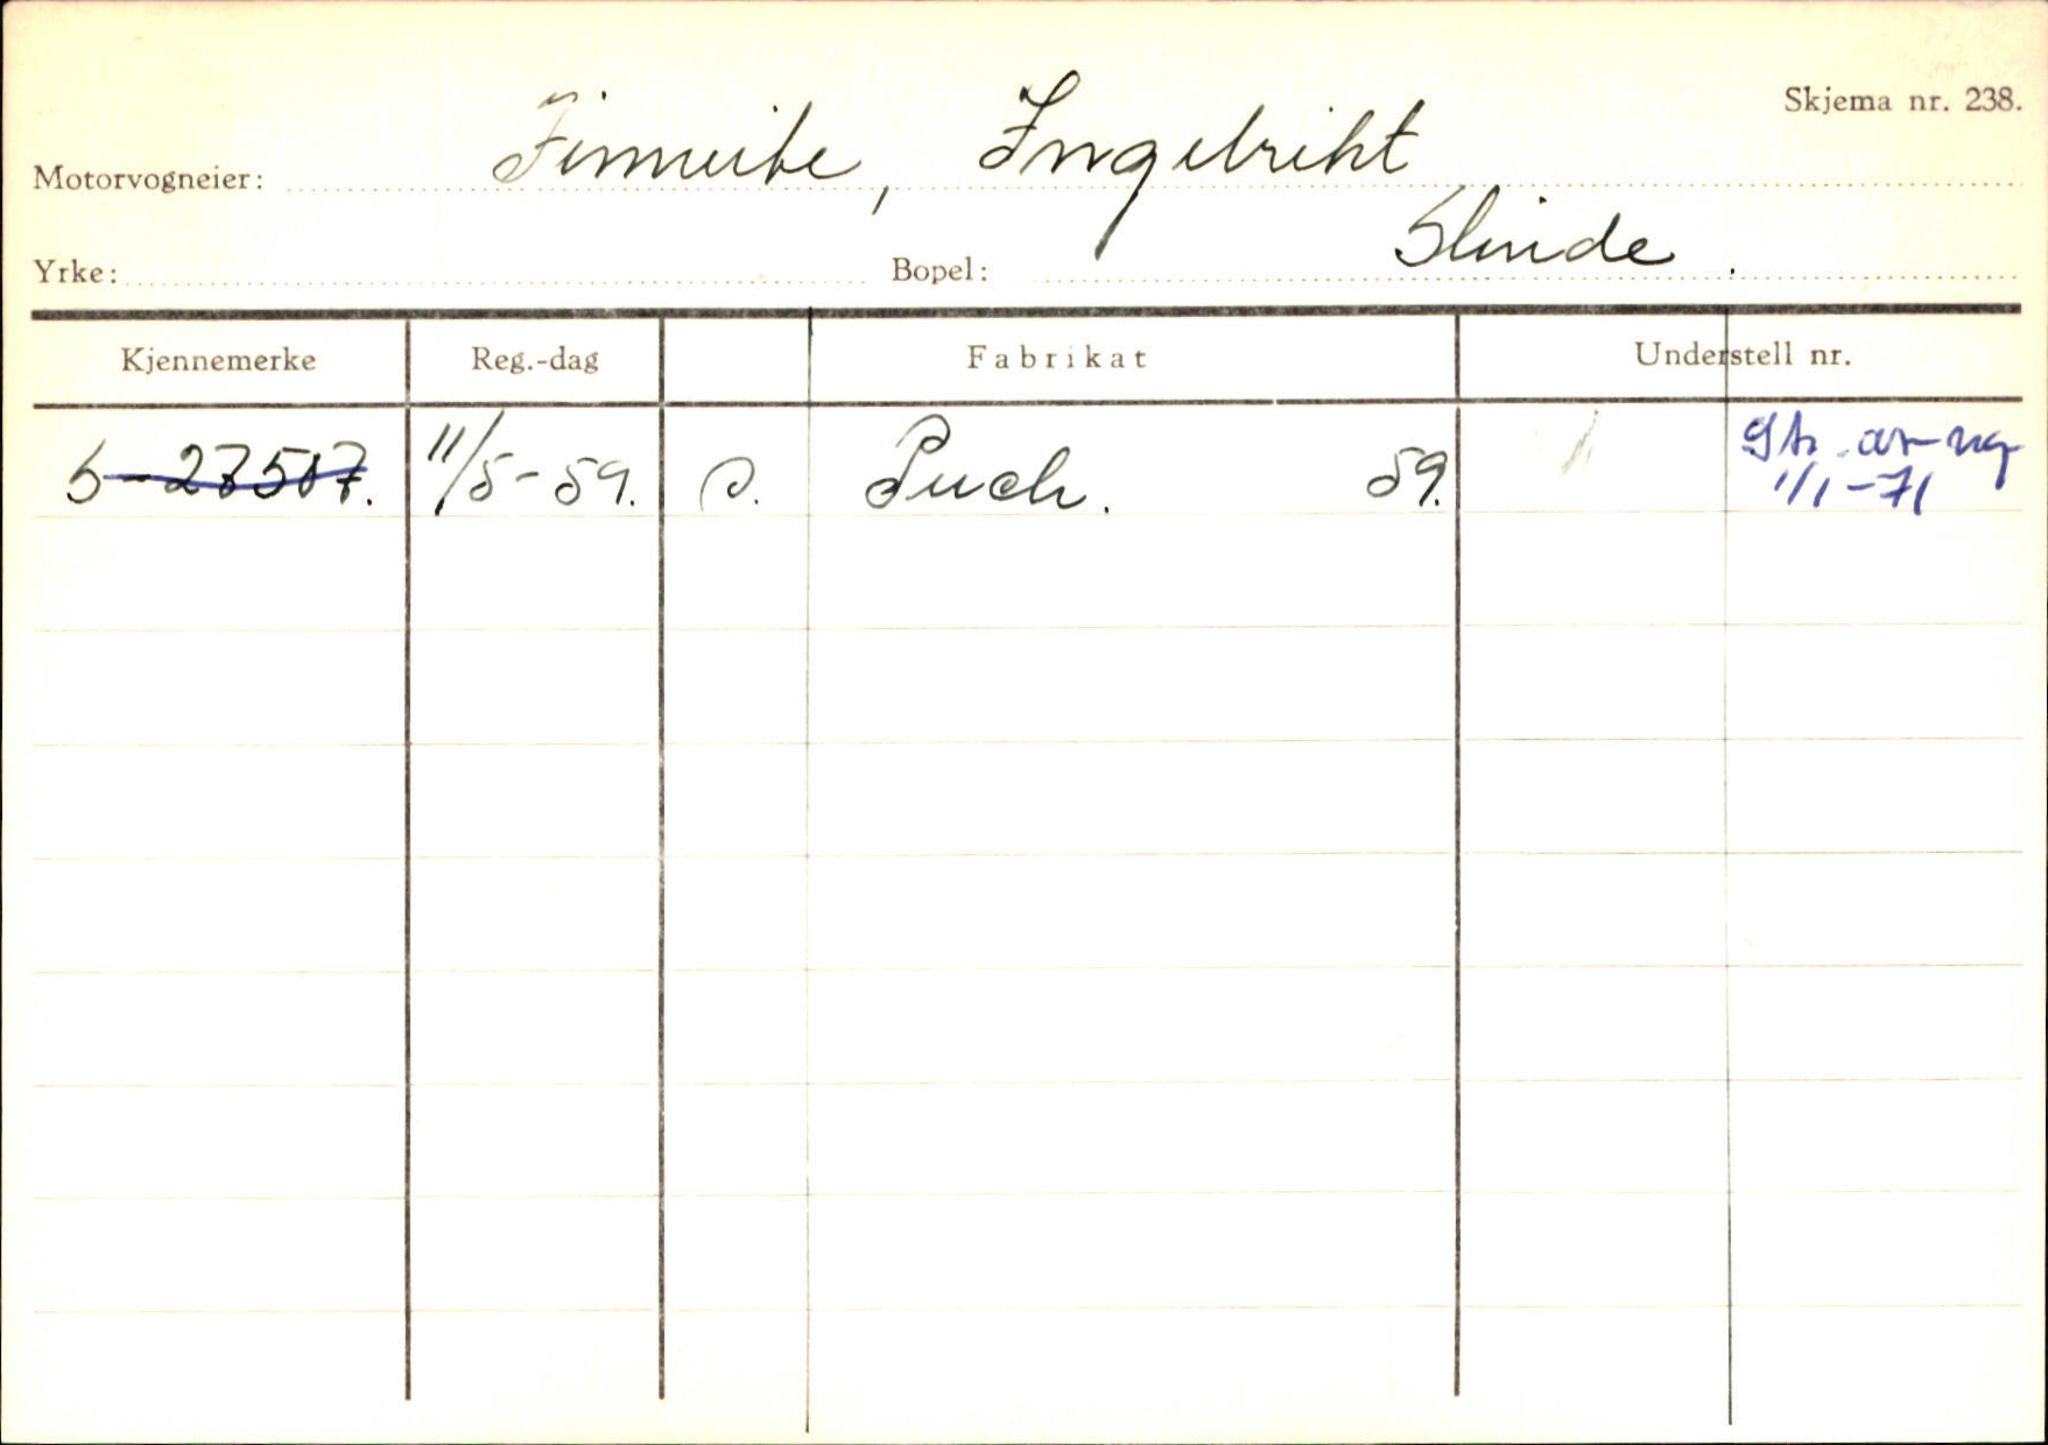 Skjema nr. 238.
Motorvogneier: Finneite, Ingebrikt
Yrke: Bopel: Slinde.
Kjennemerke Reg.-dag Fabrikat Understell nr.
S-27507. 11/5-59. P. Puch. 59. av reg
1/1-71